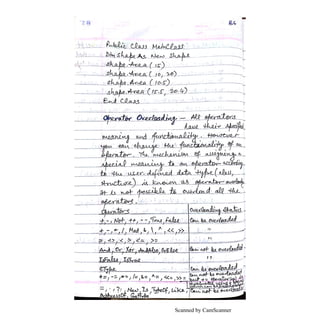 Public Class MainClass
Dim Shape As New Shape
shape.Area (15)
shape.Area (10, 20)
shape.Area (10.5)
shape.Area (15.5, 20.4)
End Class
Operator Overloading - All operators
have their specified
meaning and functionality. However
you can change the functionality of an
operator. The mechanism of assigning a
special meaning to an operator according
to the user defined data type (class,
structure) is known as operator overloading
It is not possible to overload all the
operators.
Operators Overloading Status
+, -, Not, ++, --, True, False Can be overloaded
+, -, *, /, Mod, &, \, ^, <<, >> "
=, <>, <, >, <=, >= "
And, Or, Xor, AndAlso, OrElse Can not be overloaded
IsFalse, IsTrue "
CType Can be overloaded
+=, -=, *=, \=, &=, ^=, <<=, >>= Can not be overloaded
=, ., ?:, New, Is, TypeOf, Like, Can not be overloaded
AddressOf, GetType
Scanned by CamScanner